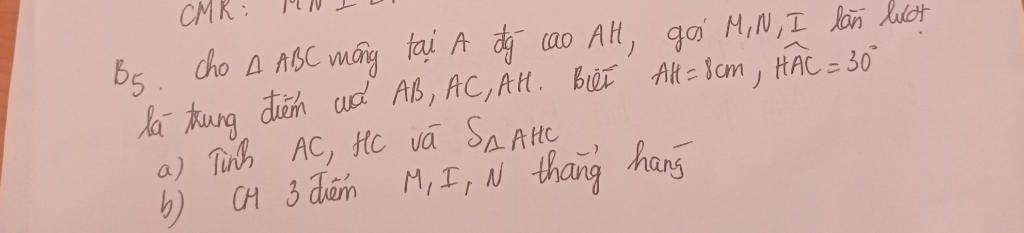 CMR: MN I
B5. Cho Δ ABC vuông tại A đg cao AH, gọi M,N,I lần lượt
là trung điểm của AB, AC, AH. Biết AH = 8cm, HAC = 30°
a) Tính AC, HC và SΔAHC
b) CM 3 điểm M, I, N thẳng hàng